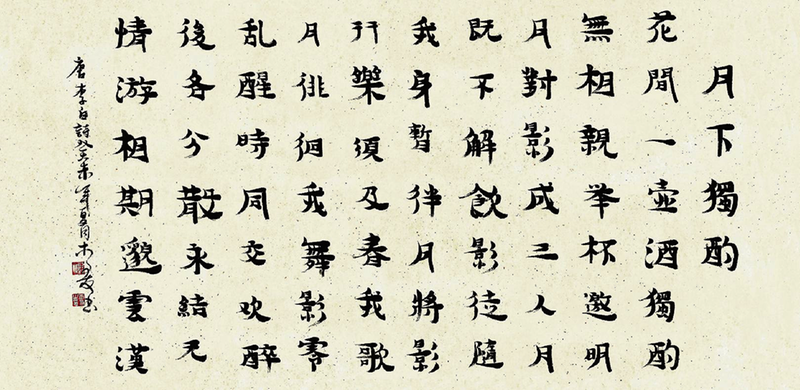 月下獨酌
花間一壺酒獨酌
無相親举杯邀明
月對影成三人月
既不解飲影徒隨
我身暫伴月將影
行樂須及春我歌
月徘徊我舞影零
乱醒時同交欢醉
後各分散永結无
情游相期邈雲漢
唐李白詩癸未年夏月木书